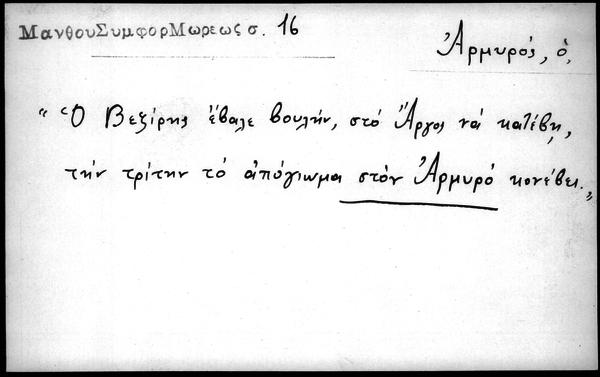 ΜανθουΣυμφορΜωρεως σ. 16
Ἁρμυρός, ὁ,
“Ὁ Βεζίρης ἔβαλε βουλήν, στό Ἄργος νά κατέβῃ,
τήν τρίτην τό ἀπόγιωμα στὸν Ἁρμυρό κονέβει.„